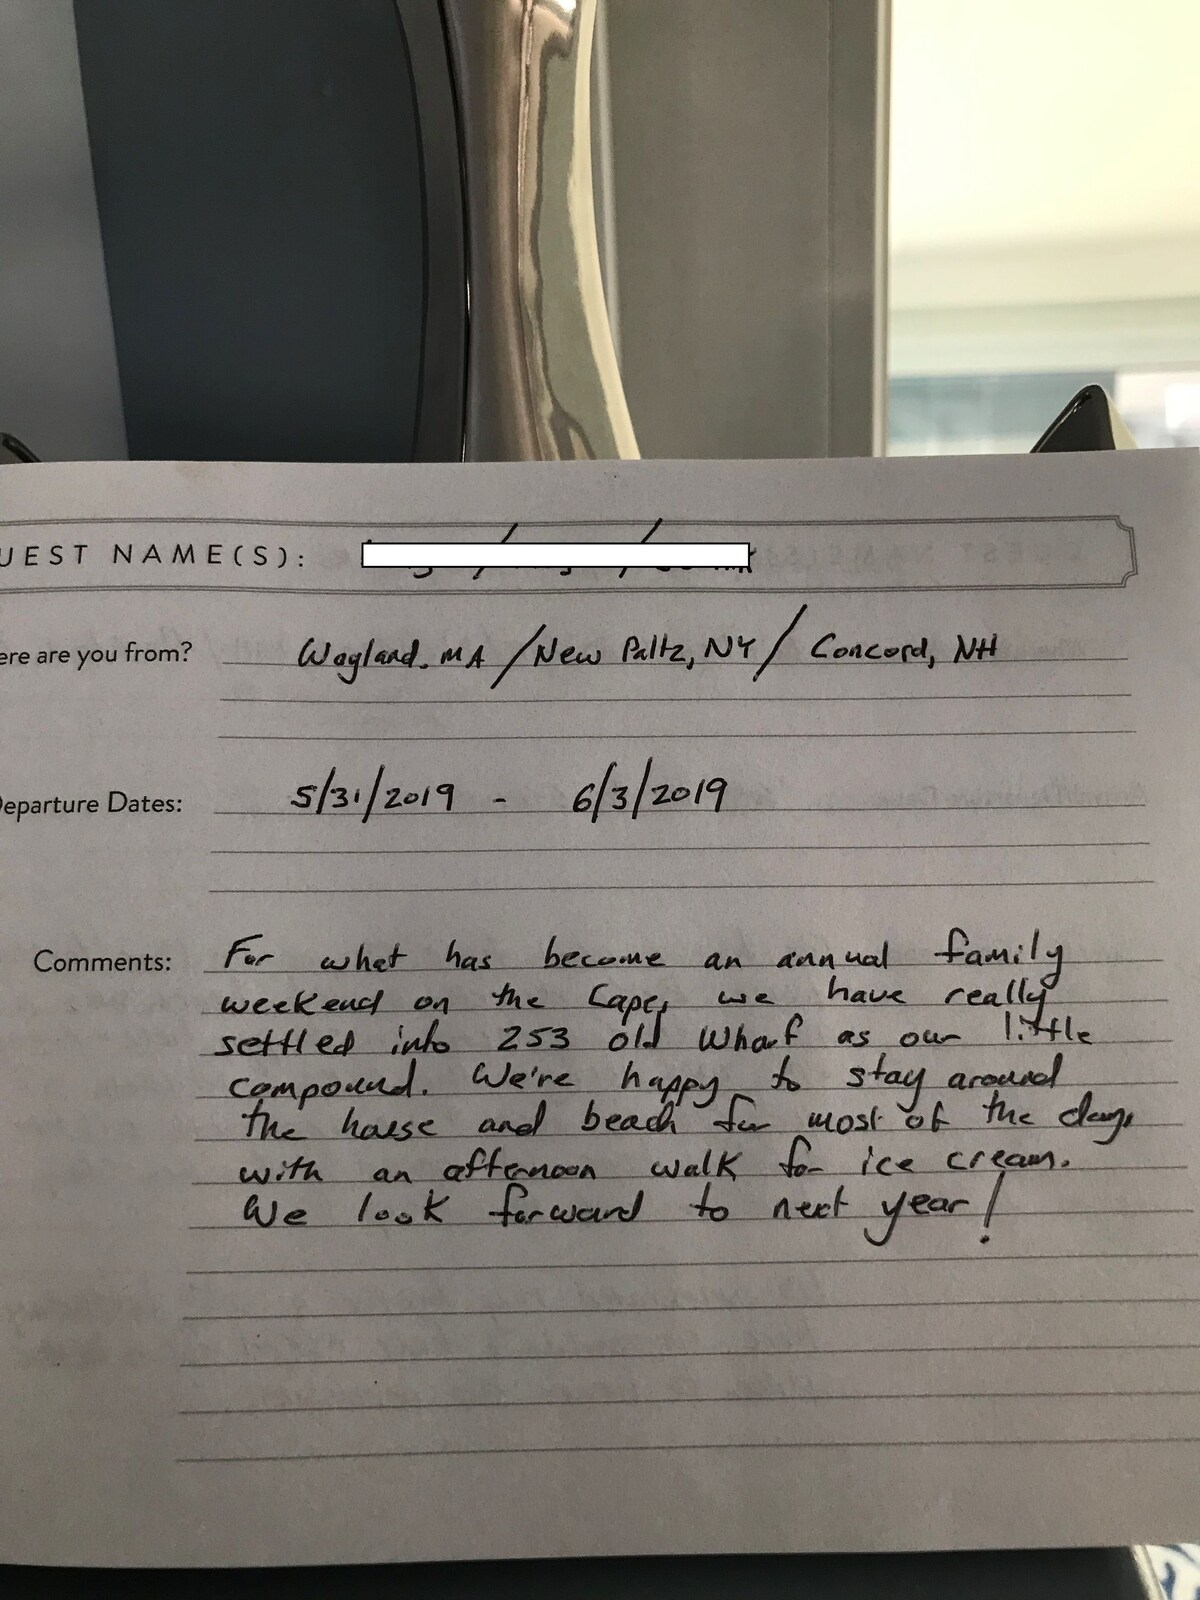 UEST NAME(S):
ere are you from? Wayland, MA / New Paltz, NY / Concord, NH
Departure Dates: 5/31/2019 - 6/3/2019
Comments: For what has become an annual family
weekend on the Cape, we have really
settled into 253 old Wharf as our little
compound. We're happy to stay around
the house and beach for most of the day,
with an afternoon walk for ice cream.
We look forward to next year!